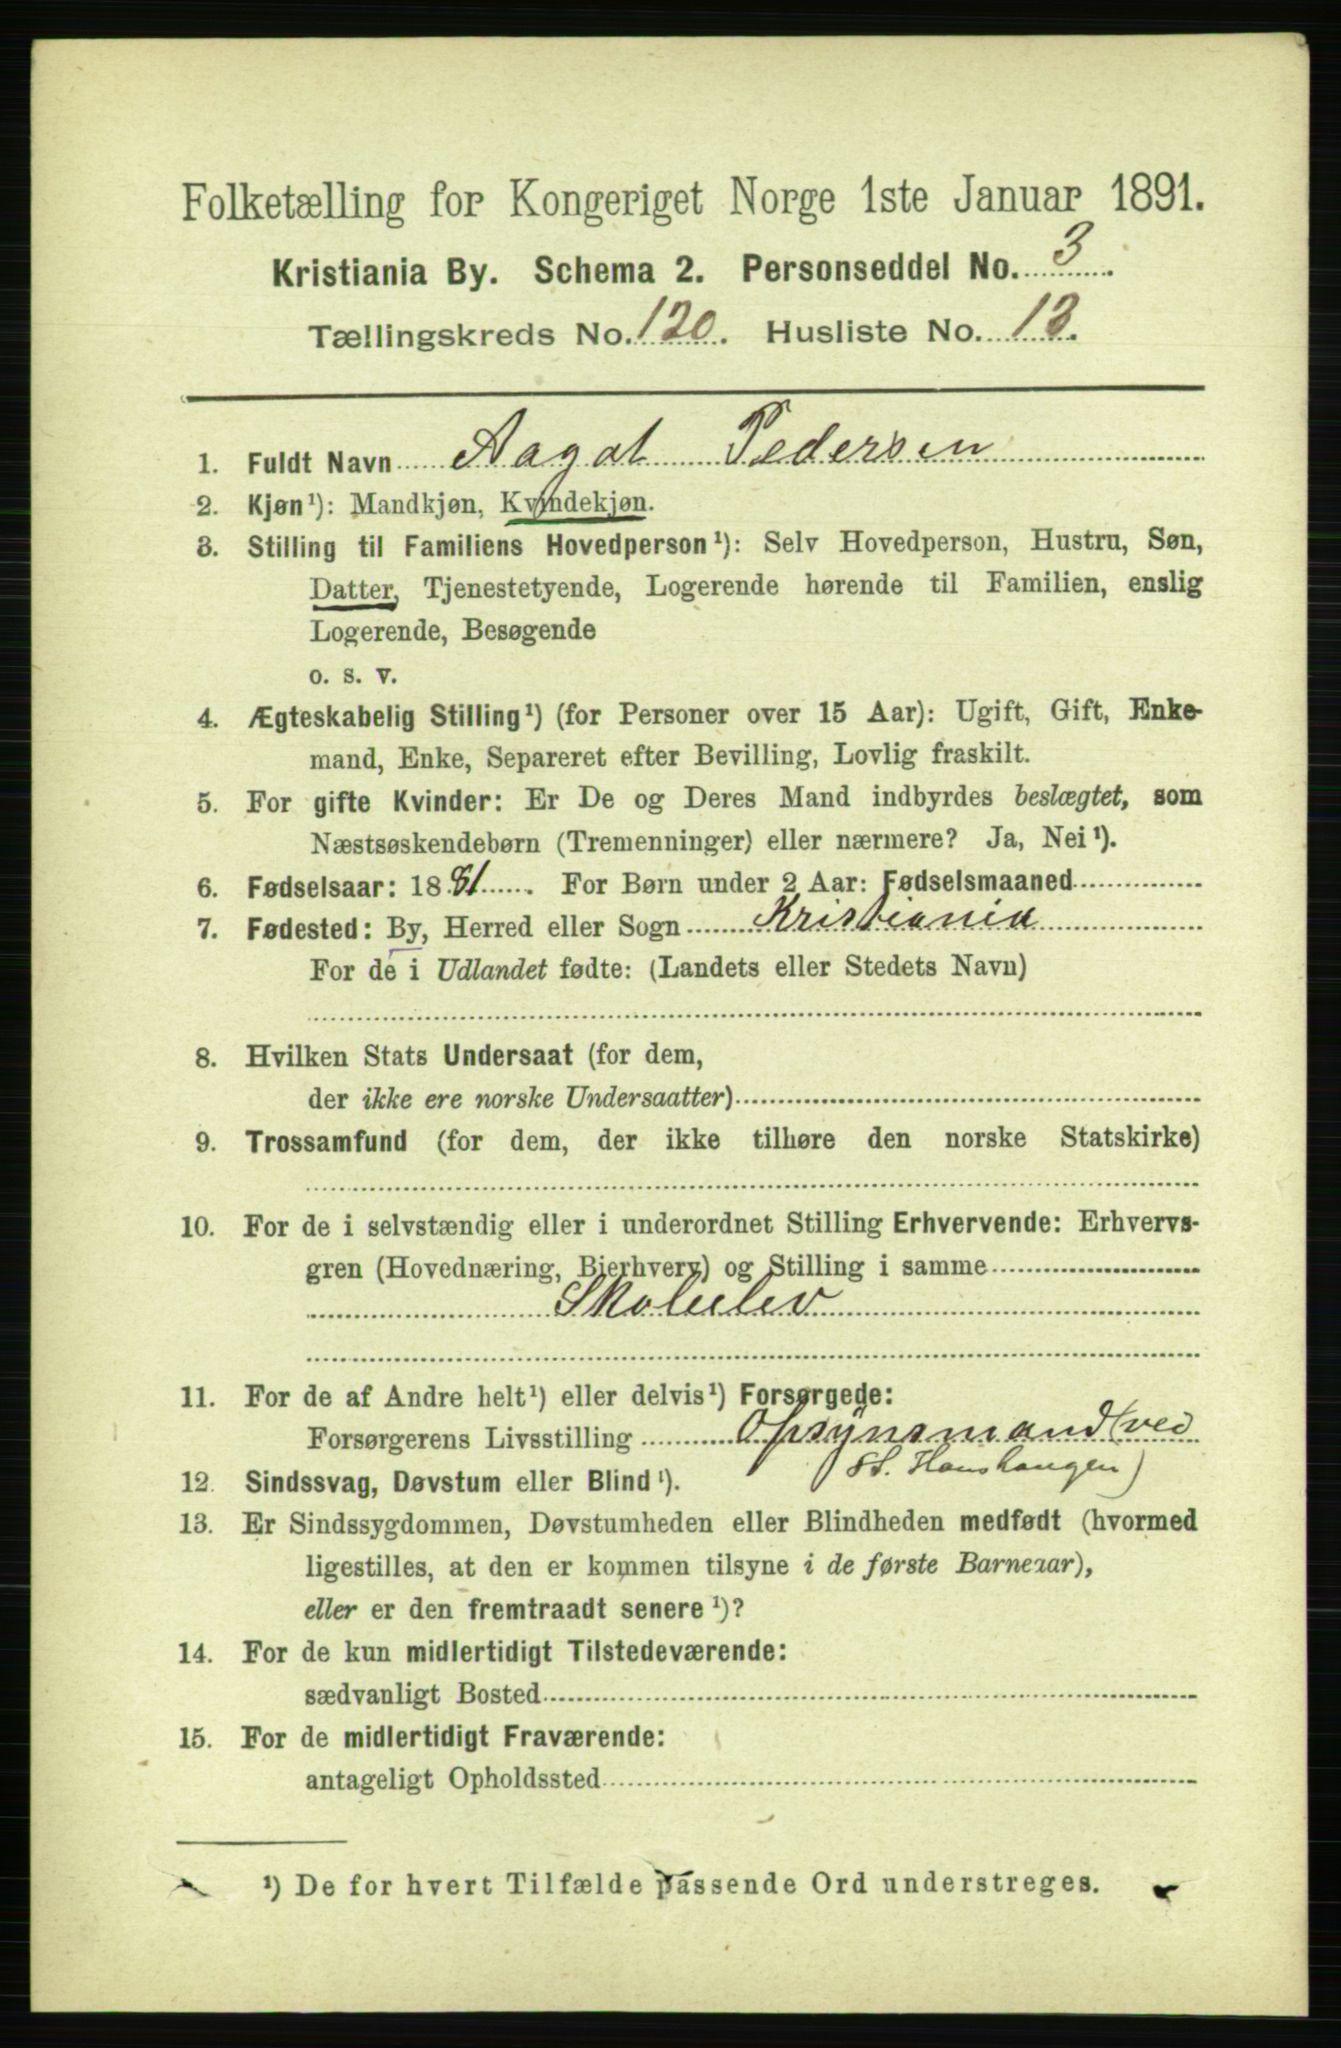 Folketælling for Kongeriget Norge 1ste Januar 1891.
Kristiania By. Schema 2. Personseddel No. 3.
Tællingskreds No. 120. Husliste No. 13.
1. Fuldt Navn Aagot Pedersen
2. Kjøn¹): Mandkjøn, Kvindekjøn.
3. Stilling til Familiens Hovedperson¹): Selv Hovedperson, Hustru, Søn,
Datter, Tjenestetyende, Logerende hørende til Familien, enslig
Logerende, Besøgende
o. s. v.
4. Ægteskabelig Stilling¹) (for Personer over 15 Aar): Ugift, Gift, Enke-
mand, Enke, Separeret efter Bevilling, Lovlig fraskilt.
5. For gifte Kvinder: Er De og Deres Mand indbyrdes beslægtet, som
Næstsøskendebørn (Tremenninger) eller nærmere? Ja, Nei¹).
6. Fødselsaar: 1881. For Børn under 2 Aar: Fødselsmaaned
7. Fødested: By, Herred eller Sogn Kristiania
For de i Udlandet fødte: (Landets eller Stedets Navn)
8. Hvilken Stats Undersaat (for dem,
der ikke ere norske Undersaatter)
9. Trossamfund (for dem, der ikke tilhøre den norske Statskirke)
10. For de i selvstændig eller i underordnet Stilling Erhvervende: Erhvervs-
gren (Hovednæring, Bierhverv) og Stilling i samme
Skoleelev
11. For de af Andre helt¹) eller delvis¹) Forsørgede:
Forsørgerens Livsstilling Opsynsmand (ved
St. Hanshaugen)
12. Sindssvag, Døvstum eller Blind¹).
13. Er Sindssygdommen, Døvstumheden eller Blindheden medfødt (hvormed
ligestilles, at den er kommen tilsyne i de første Barneaar),
eller er den fremtraadt senere¹)?
14. For de kun midlertidigt Tilstedeværende:
sædvanligt Bosted
15. For de midlertidigt Fraværende:
antageligt Opholdssted
¹) De for hvert Tilfælde passende Ord understreges.